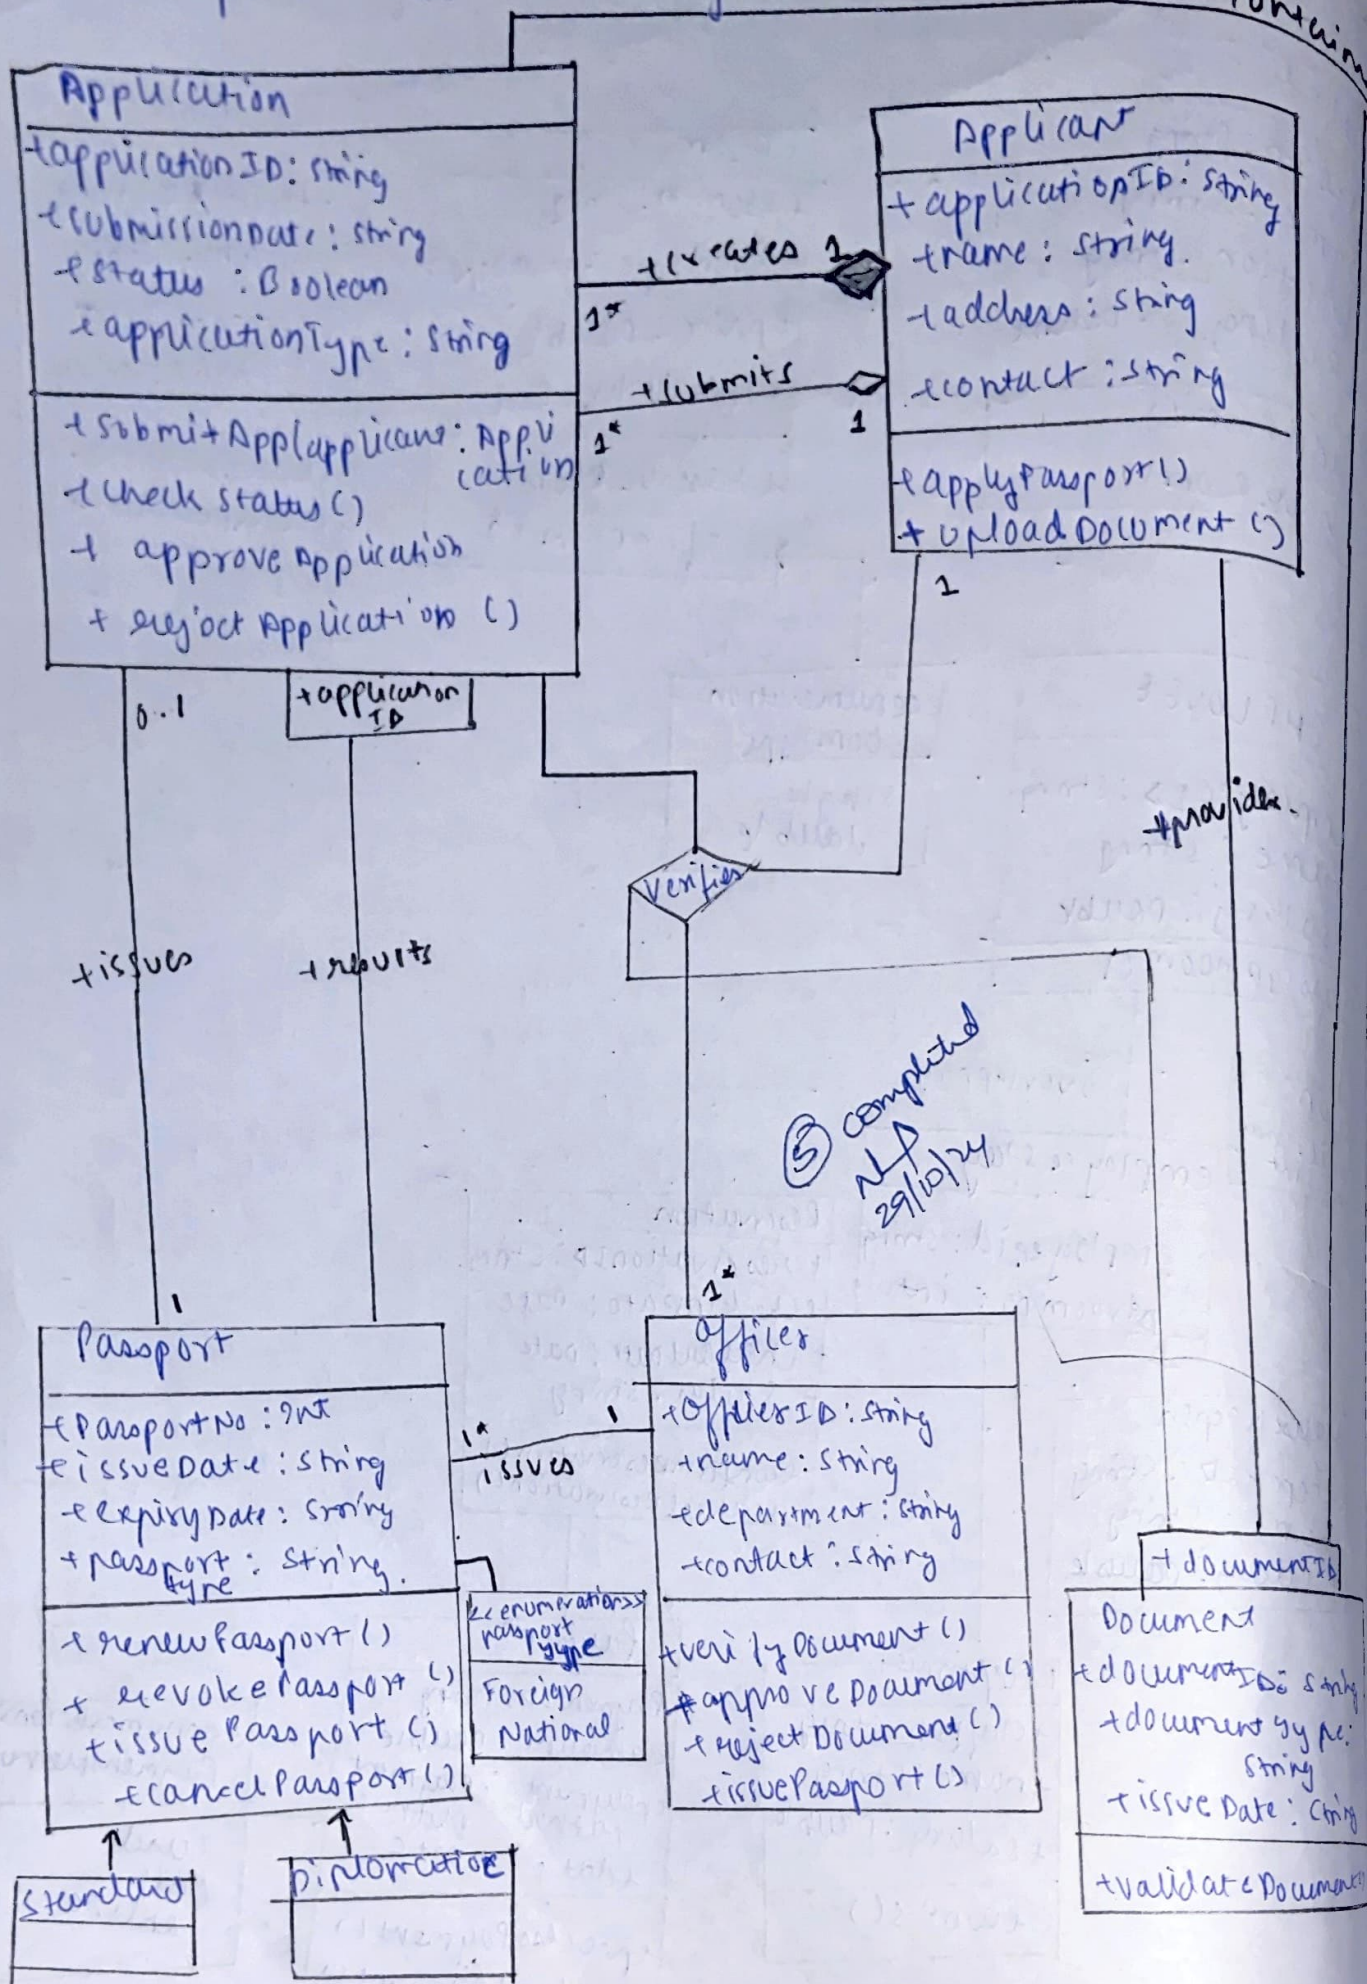 Application
+applicationID: String
+submissionDate: String
+status : Boolean
+applicationType: String
+submitApp(applicant: Appli
cation
+check status()
+ approve Application
+ reject Application ()
Applicant
+ applicationID: String
+name: String.
+address: String
+contact: String
+applyPassport()
+ uploadDocument ()
+creates
1
1*
+submits
1*
1
1
0..1
+application
ID
verifies
+provides.
+issues
+results
5 completed
29/10/24
1
1*
Passport
+PassportNo: Int
+issueDate: String
+expiryDate: String
+passport : String.
type
+renewPassport()
+ revokePassport()
+issue Passport()
+cancelPassport()
1*
1
issues
<<enumeration>>
passport
type
Foreign
National
Officer
+OfficerID: String
+name: String
+department: String
+contact: String
+verifyDocument()
+approve Document()
+rejectDocument()
+issuePassport()
+ documentID
Document
+documentID: String
+document type:
String
+issueDate: String
+validateDocument
Standard